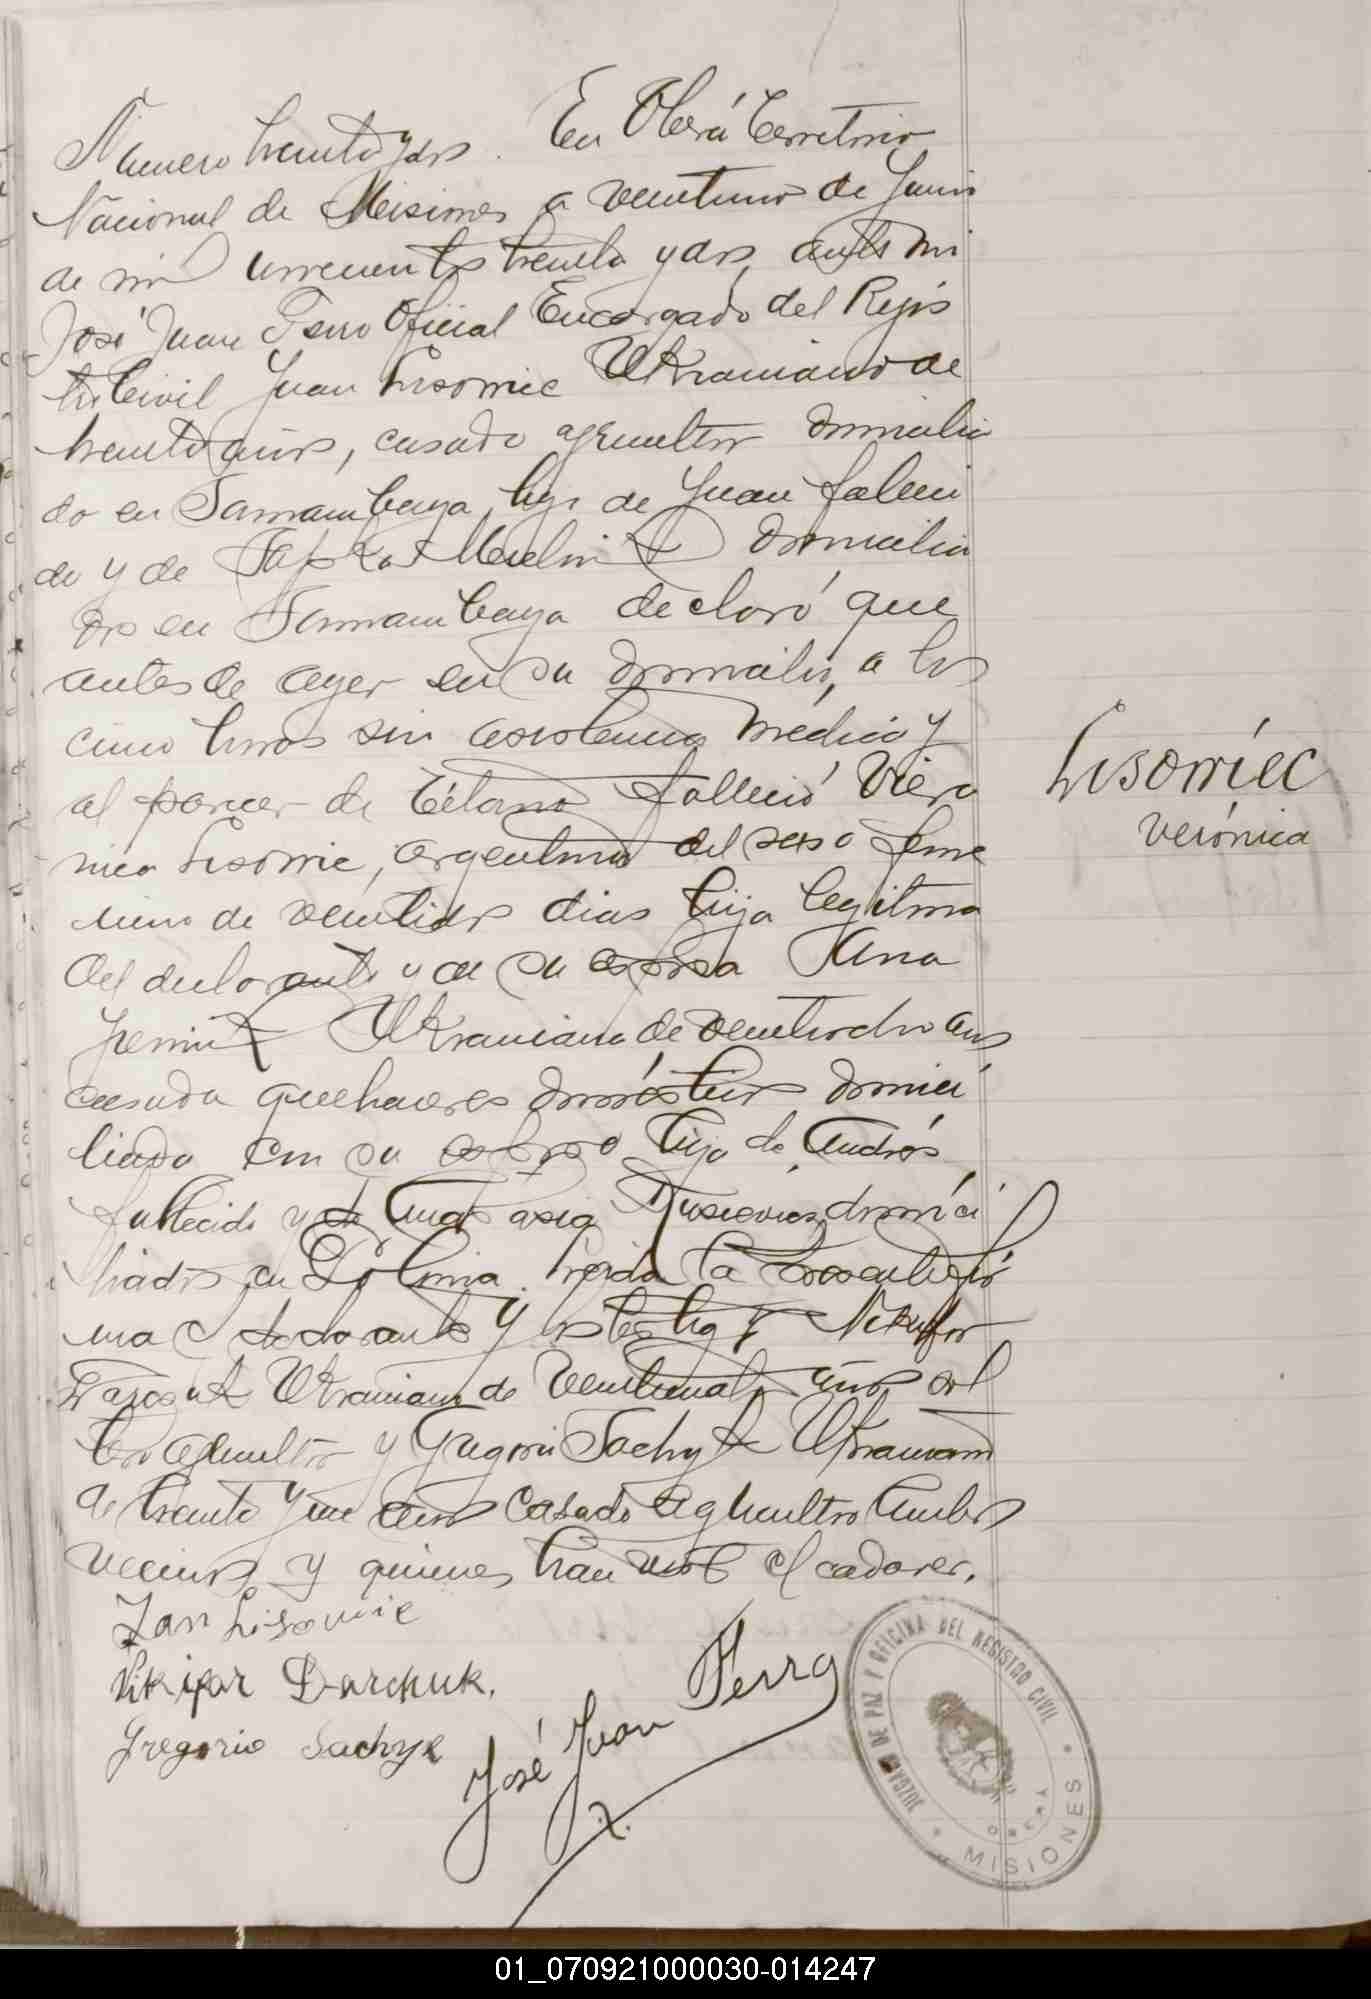 Número treinta y dos. En Oberá Territorio
Nacional de Misiones a veintiuno de Junio
de mil novecientos treinta y dos, ante mi
José Juan Ferro Oficial Encargado del Regis
tro Civil Juan Lisowiec Ukraniano de
treinta años, casado agricultor domicilia
do en Samambaya, hijo de Juan falleci
do y de domicilia
dos en Samambaya declaró que
antes de ayer en su domicilio, a las
cinco horas sin asistencia médica y
al parecer de Tétano falleció Veró
nica Lisowie, argentina del sexo feme
nino de veintidos dias hija legitima
del declarante y de su esposa Ana
Ukraniana de veintiocho años
casada quehaceres domésticos domici
liada con su esposo hija de Andrés
fallecido y de domici
liados en Polonia. Leida la
el declarante y los testigos Nikifor
Darczuk Ukraniano de años sol
tero agricultor y Gregorio Sachyk Ukraniano
de treinta y años casado agricultor ambos
vecinos y quienes han visto el cadaver.
Jan Lisowie
Nikifor Darchuk.
Gregorio Sachyk
José Juan Ferro
Lisowiec
Verónica
JUZGADO DE PAZ Y OFICINA DEL REGISTRO CIVIL
OBERÁ
MISIONES
01_070921000030-014247